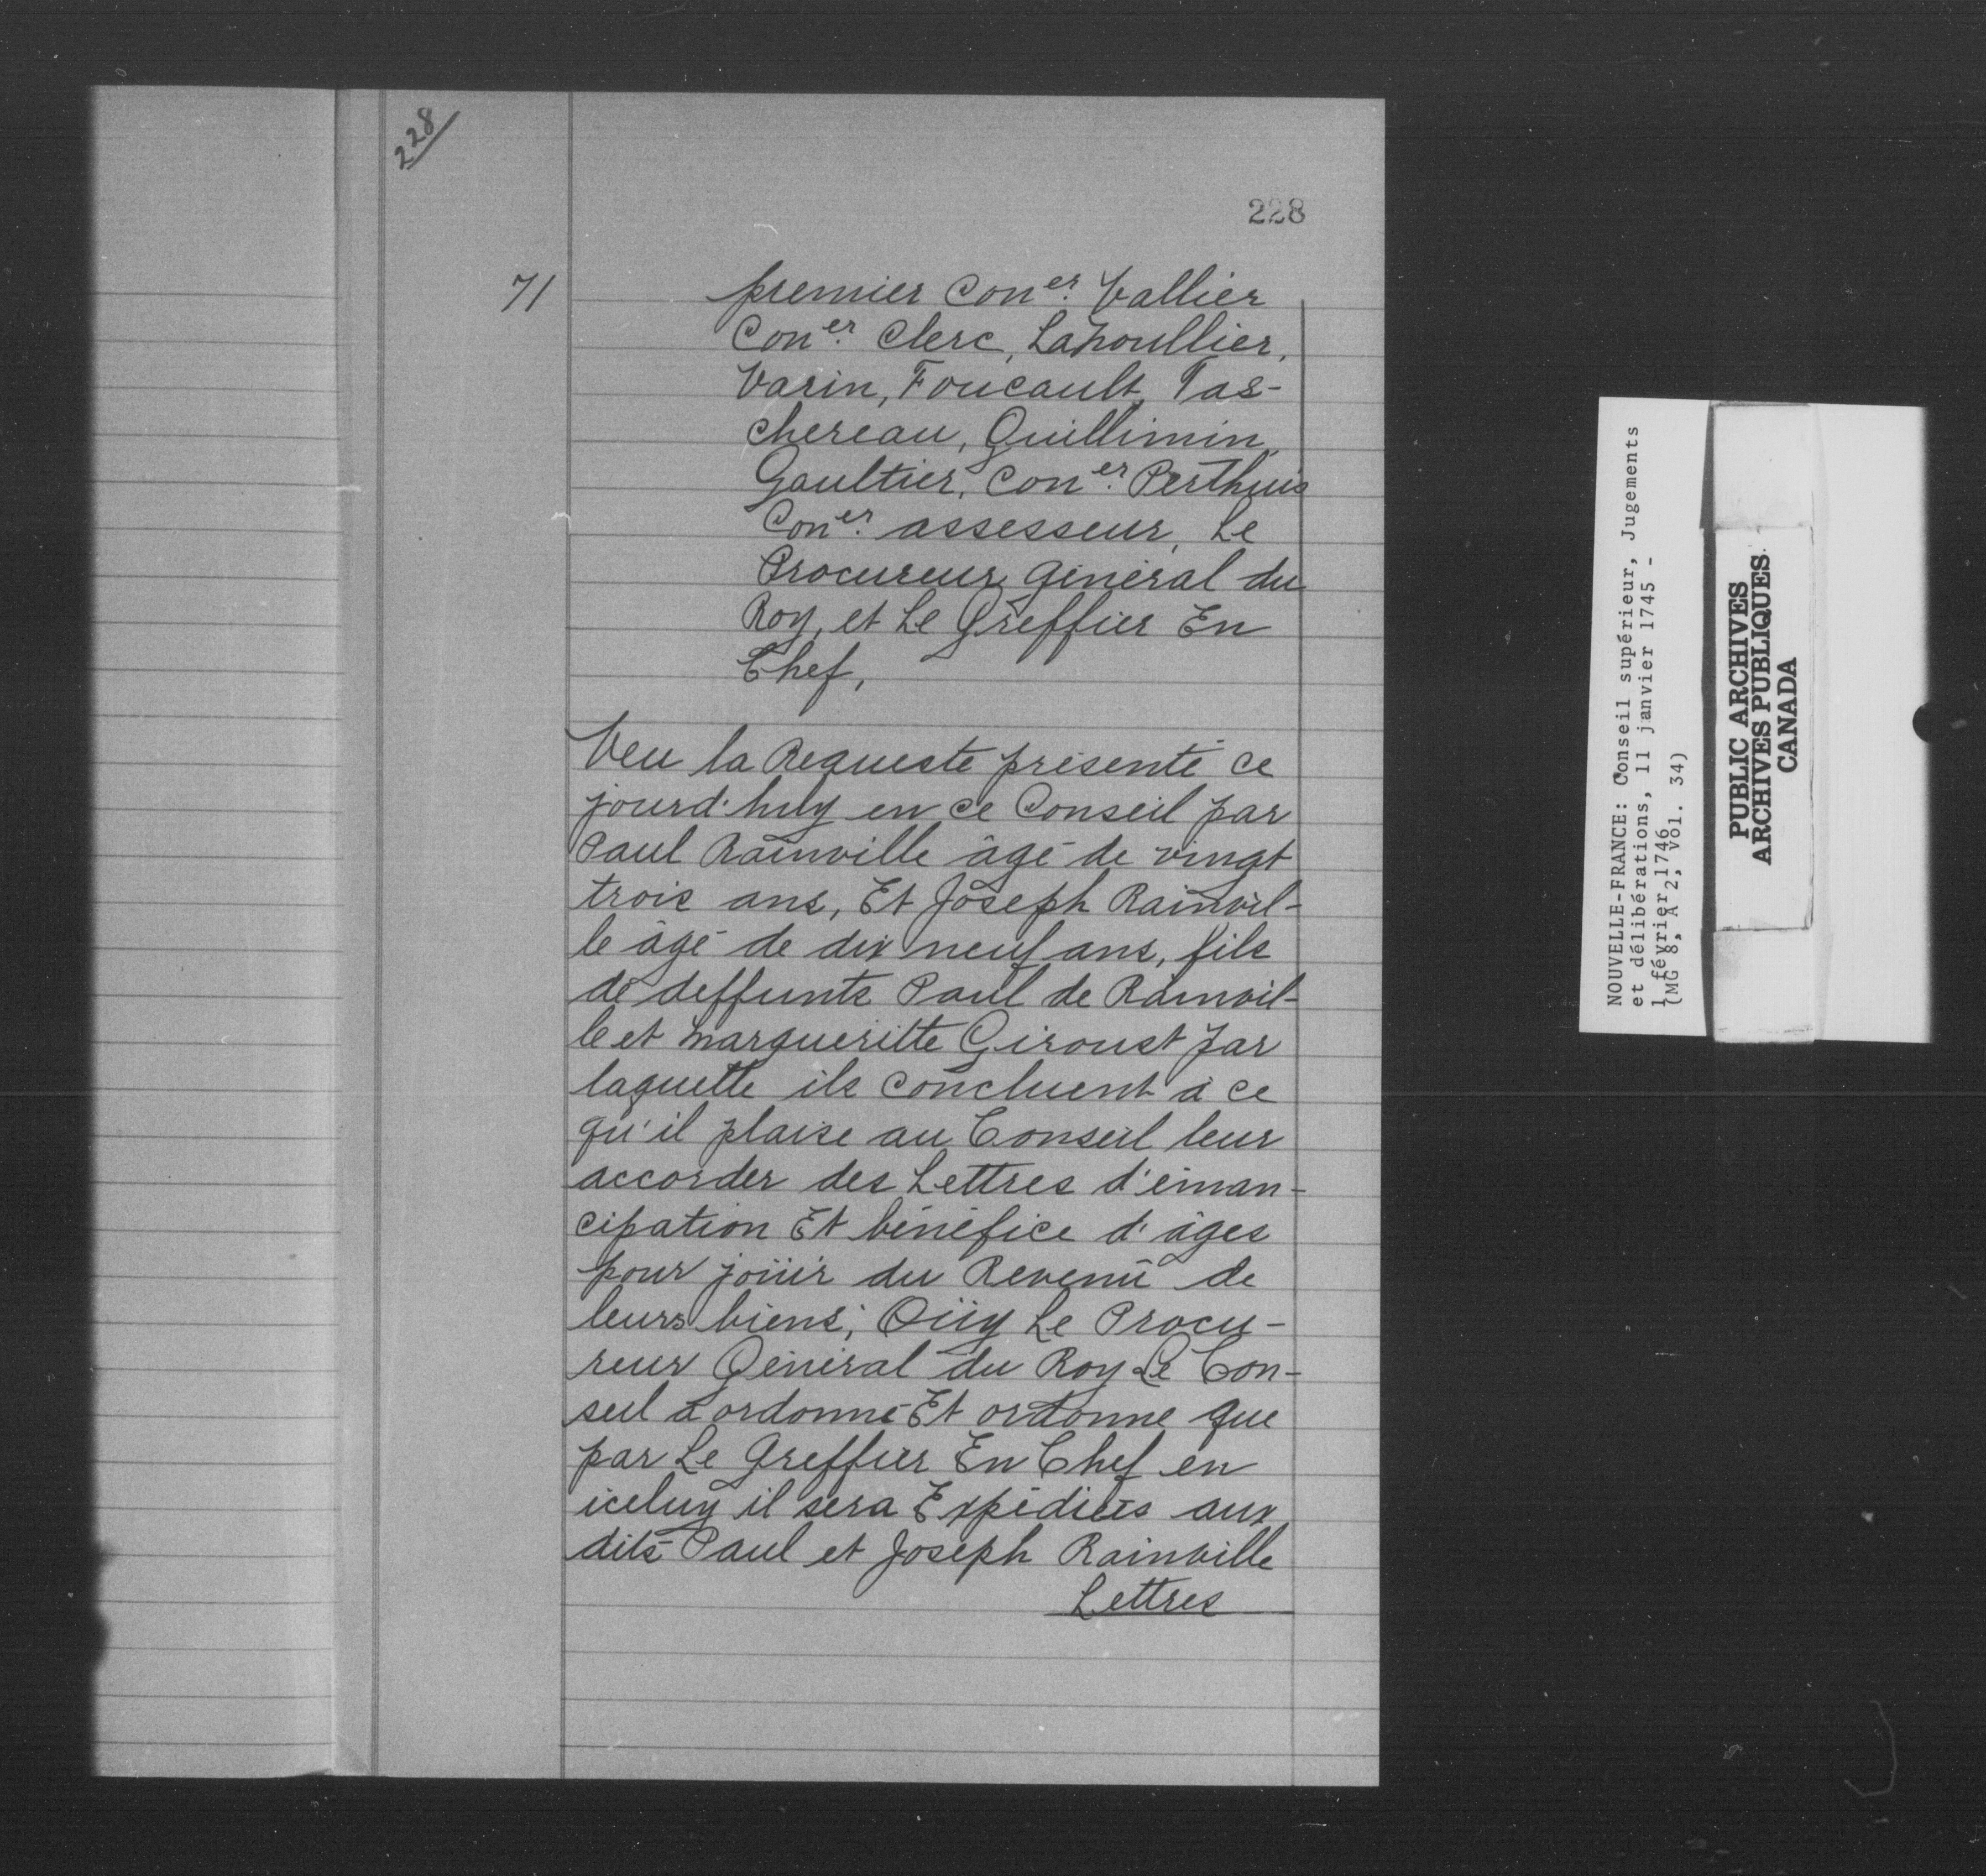 228
228
71
premier Con.er Vallier
Con.er Clerc, Lanoullier,
Varin, Foucault, Tas-
chereau, Guillimin,
Gaultier, Con.er Perthuis
Con.er assesseur, Le
Procureur général du
Roy, et Le Greffier En
Chef,
Veu la Requeste présenté ce
jourd'huy en ce Conseil par
Paul Rainville âgé de vingt
trois ans, Et Joseph Rainvil-
le âgé de dix neuf ans, fils
de deffunts Paul de Rainvil-
le et margueritte Giroust par
laquelle ils concluent à ce
qu'il plaise au Conseil leur
accorder des Lettres d'éman-
cipation Et bénéfice d'âges
pour joüir du Revenû de
leurs biens; Oüy Le Procu-
reur Général du Roy Le Con-
seil a ordonné Et ordonne que
par Le Greffier En Chef en
iceluy il sera Expédiées aux
dits Paul et Joseph Rainville
Lettres
NOUVELLE-FRANCE: Conseil supérieur, Jugements
et délibérations, 11 janvier 1745 -
1 février 1746
(MG 8, A 2, vol. 34)
PUBLIC ARCHIVES
ARCHIVES PUBLIQUES
CANADA